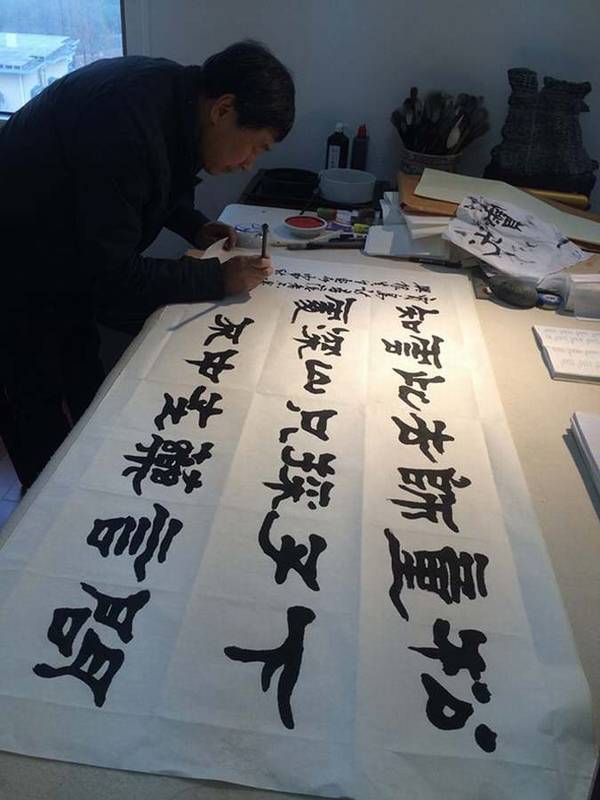 松下問
童子言
師採藥
去只在
此山中
雲深不
知處